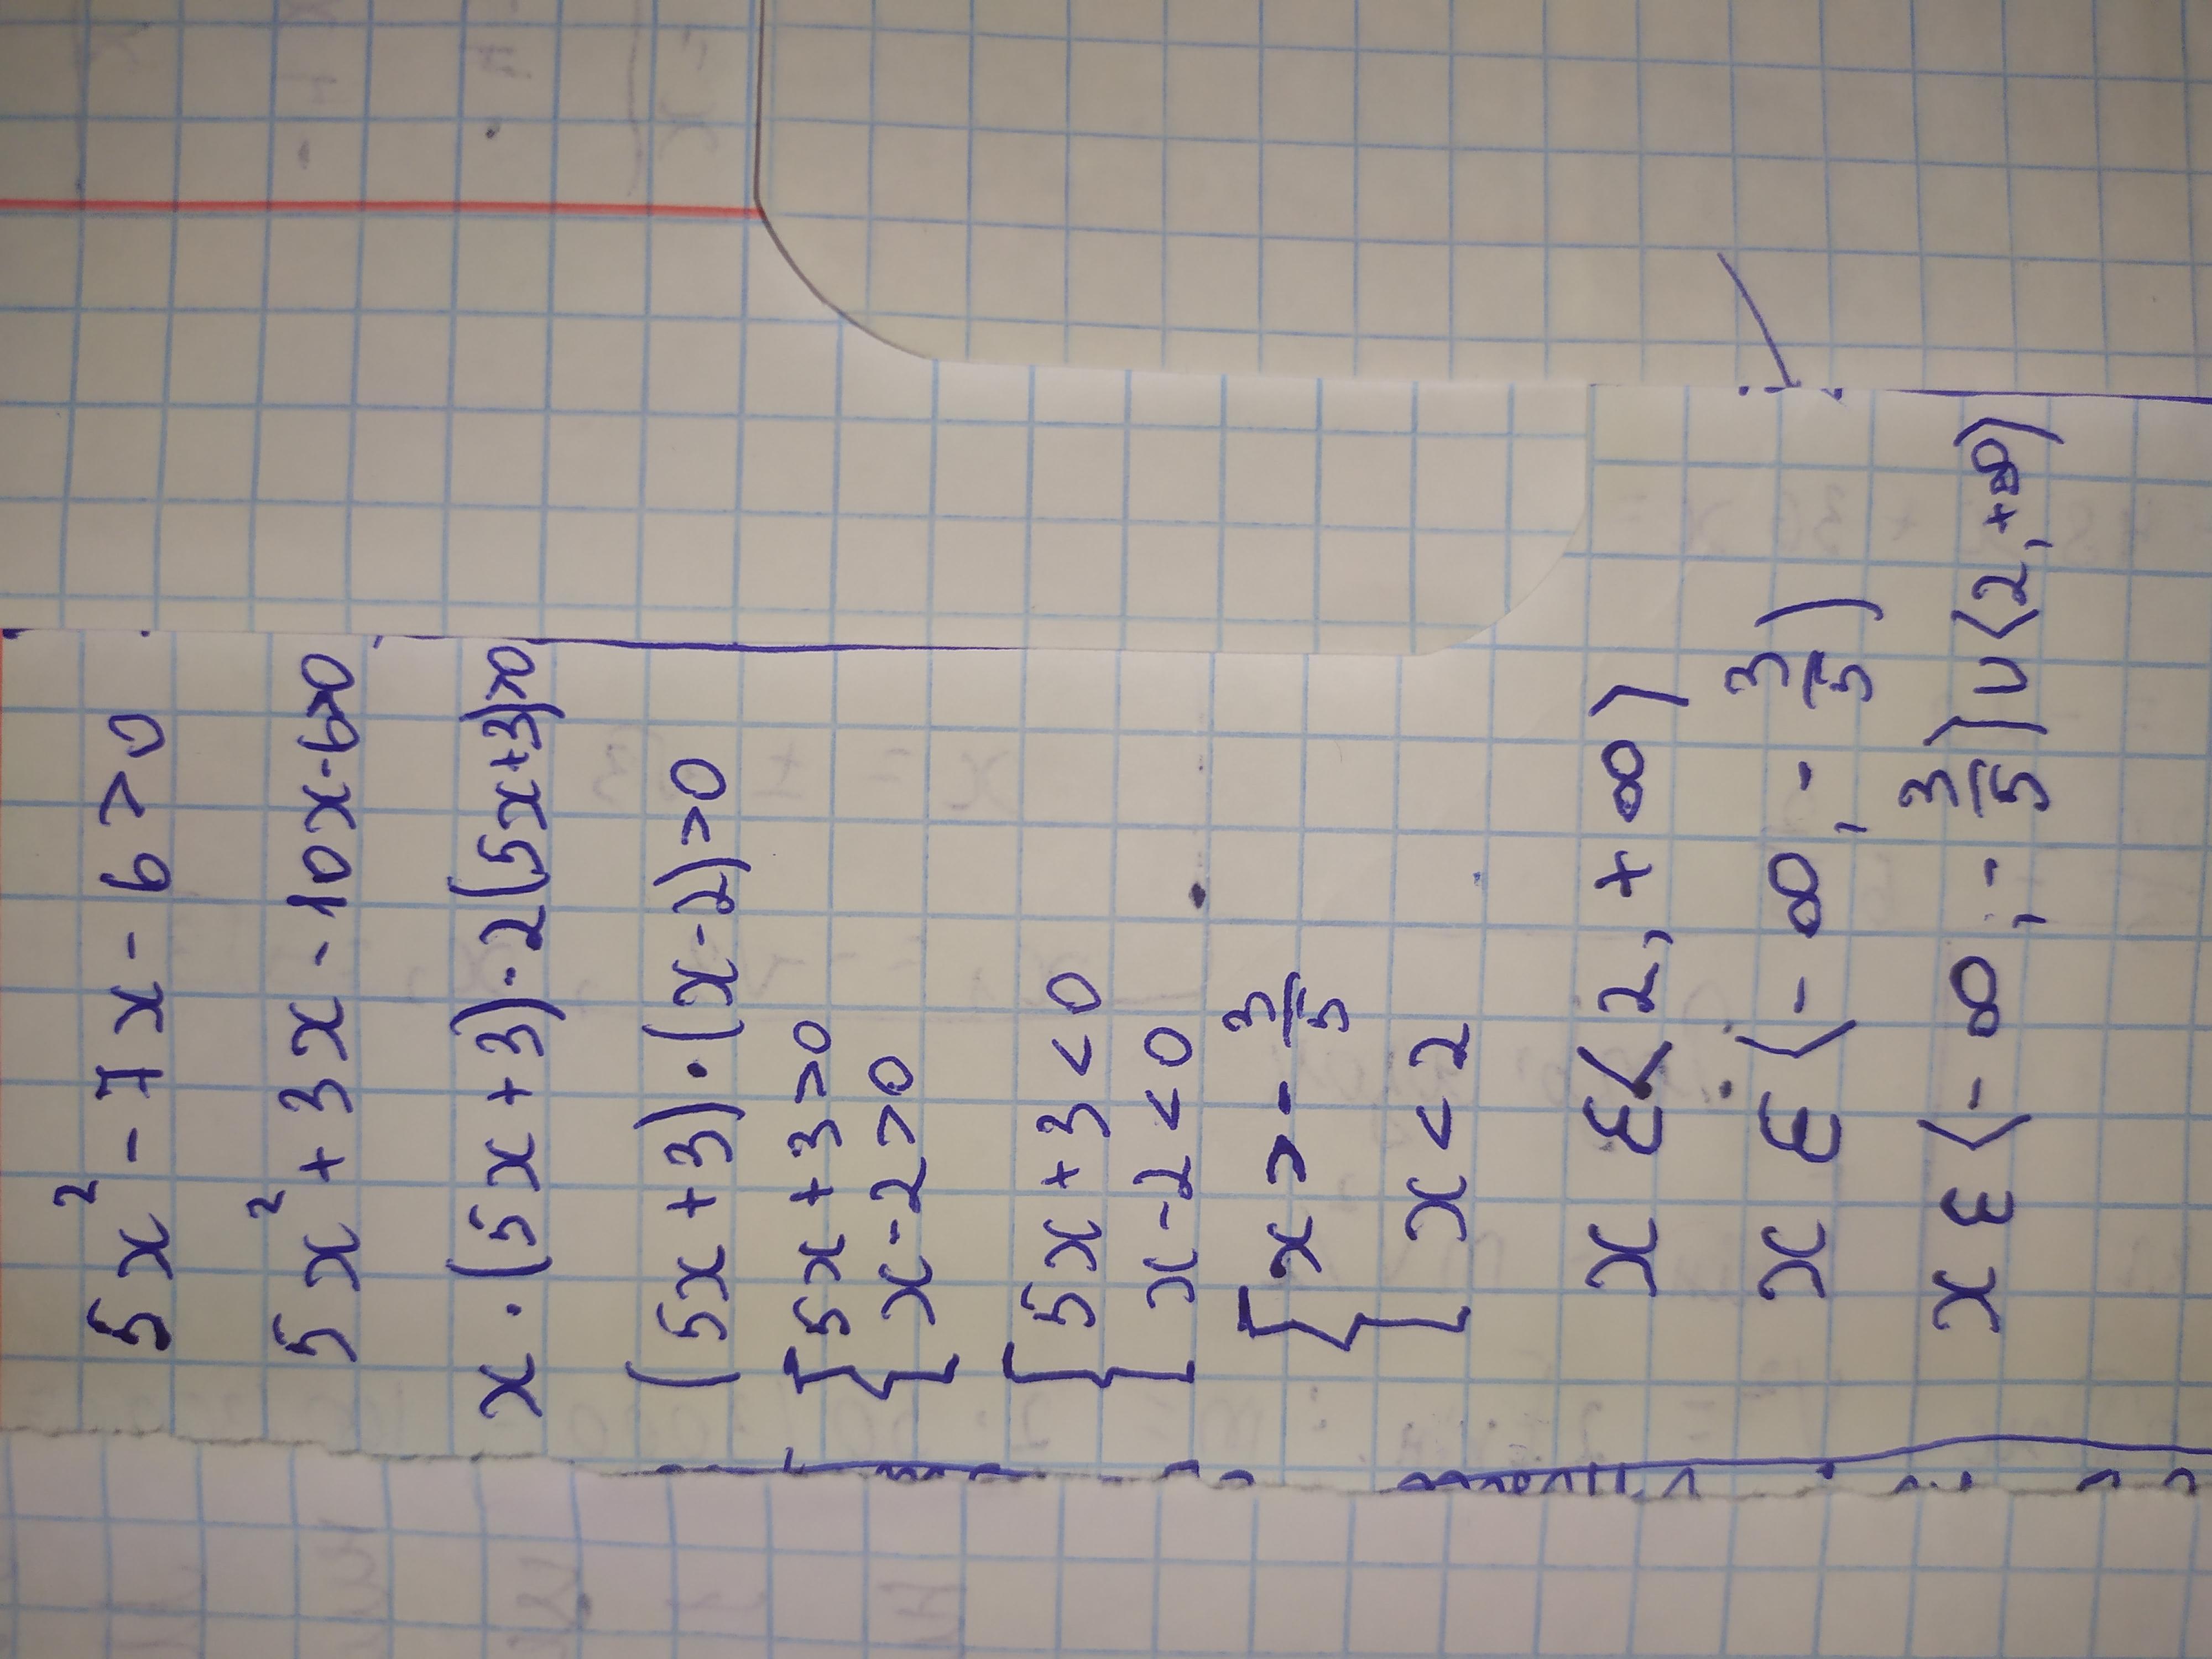 5x² - 7x - 6 > 0
5x² + 3x - 10x - 6>0
x · (5x + 3) · 2(5x+3)>0
(5x + 3) · (x - 2) > 0
{5x + 3 > 0
x - 2 > 0
{5x + 3 < 0
x - 2 < 0
{x > - 3/5
x < 2
x ∈ ⟨2, + ∞)
x ∈ ⟨- ∞, - 3/5)
x ∈ ⟨- ∞, - 3/5) ∪ ⟨2, +∞)